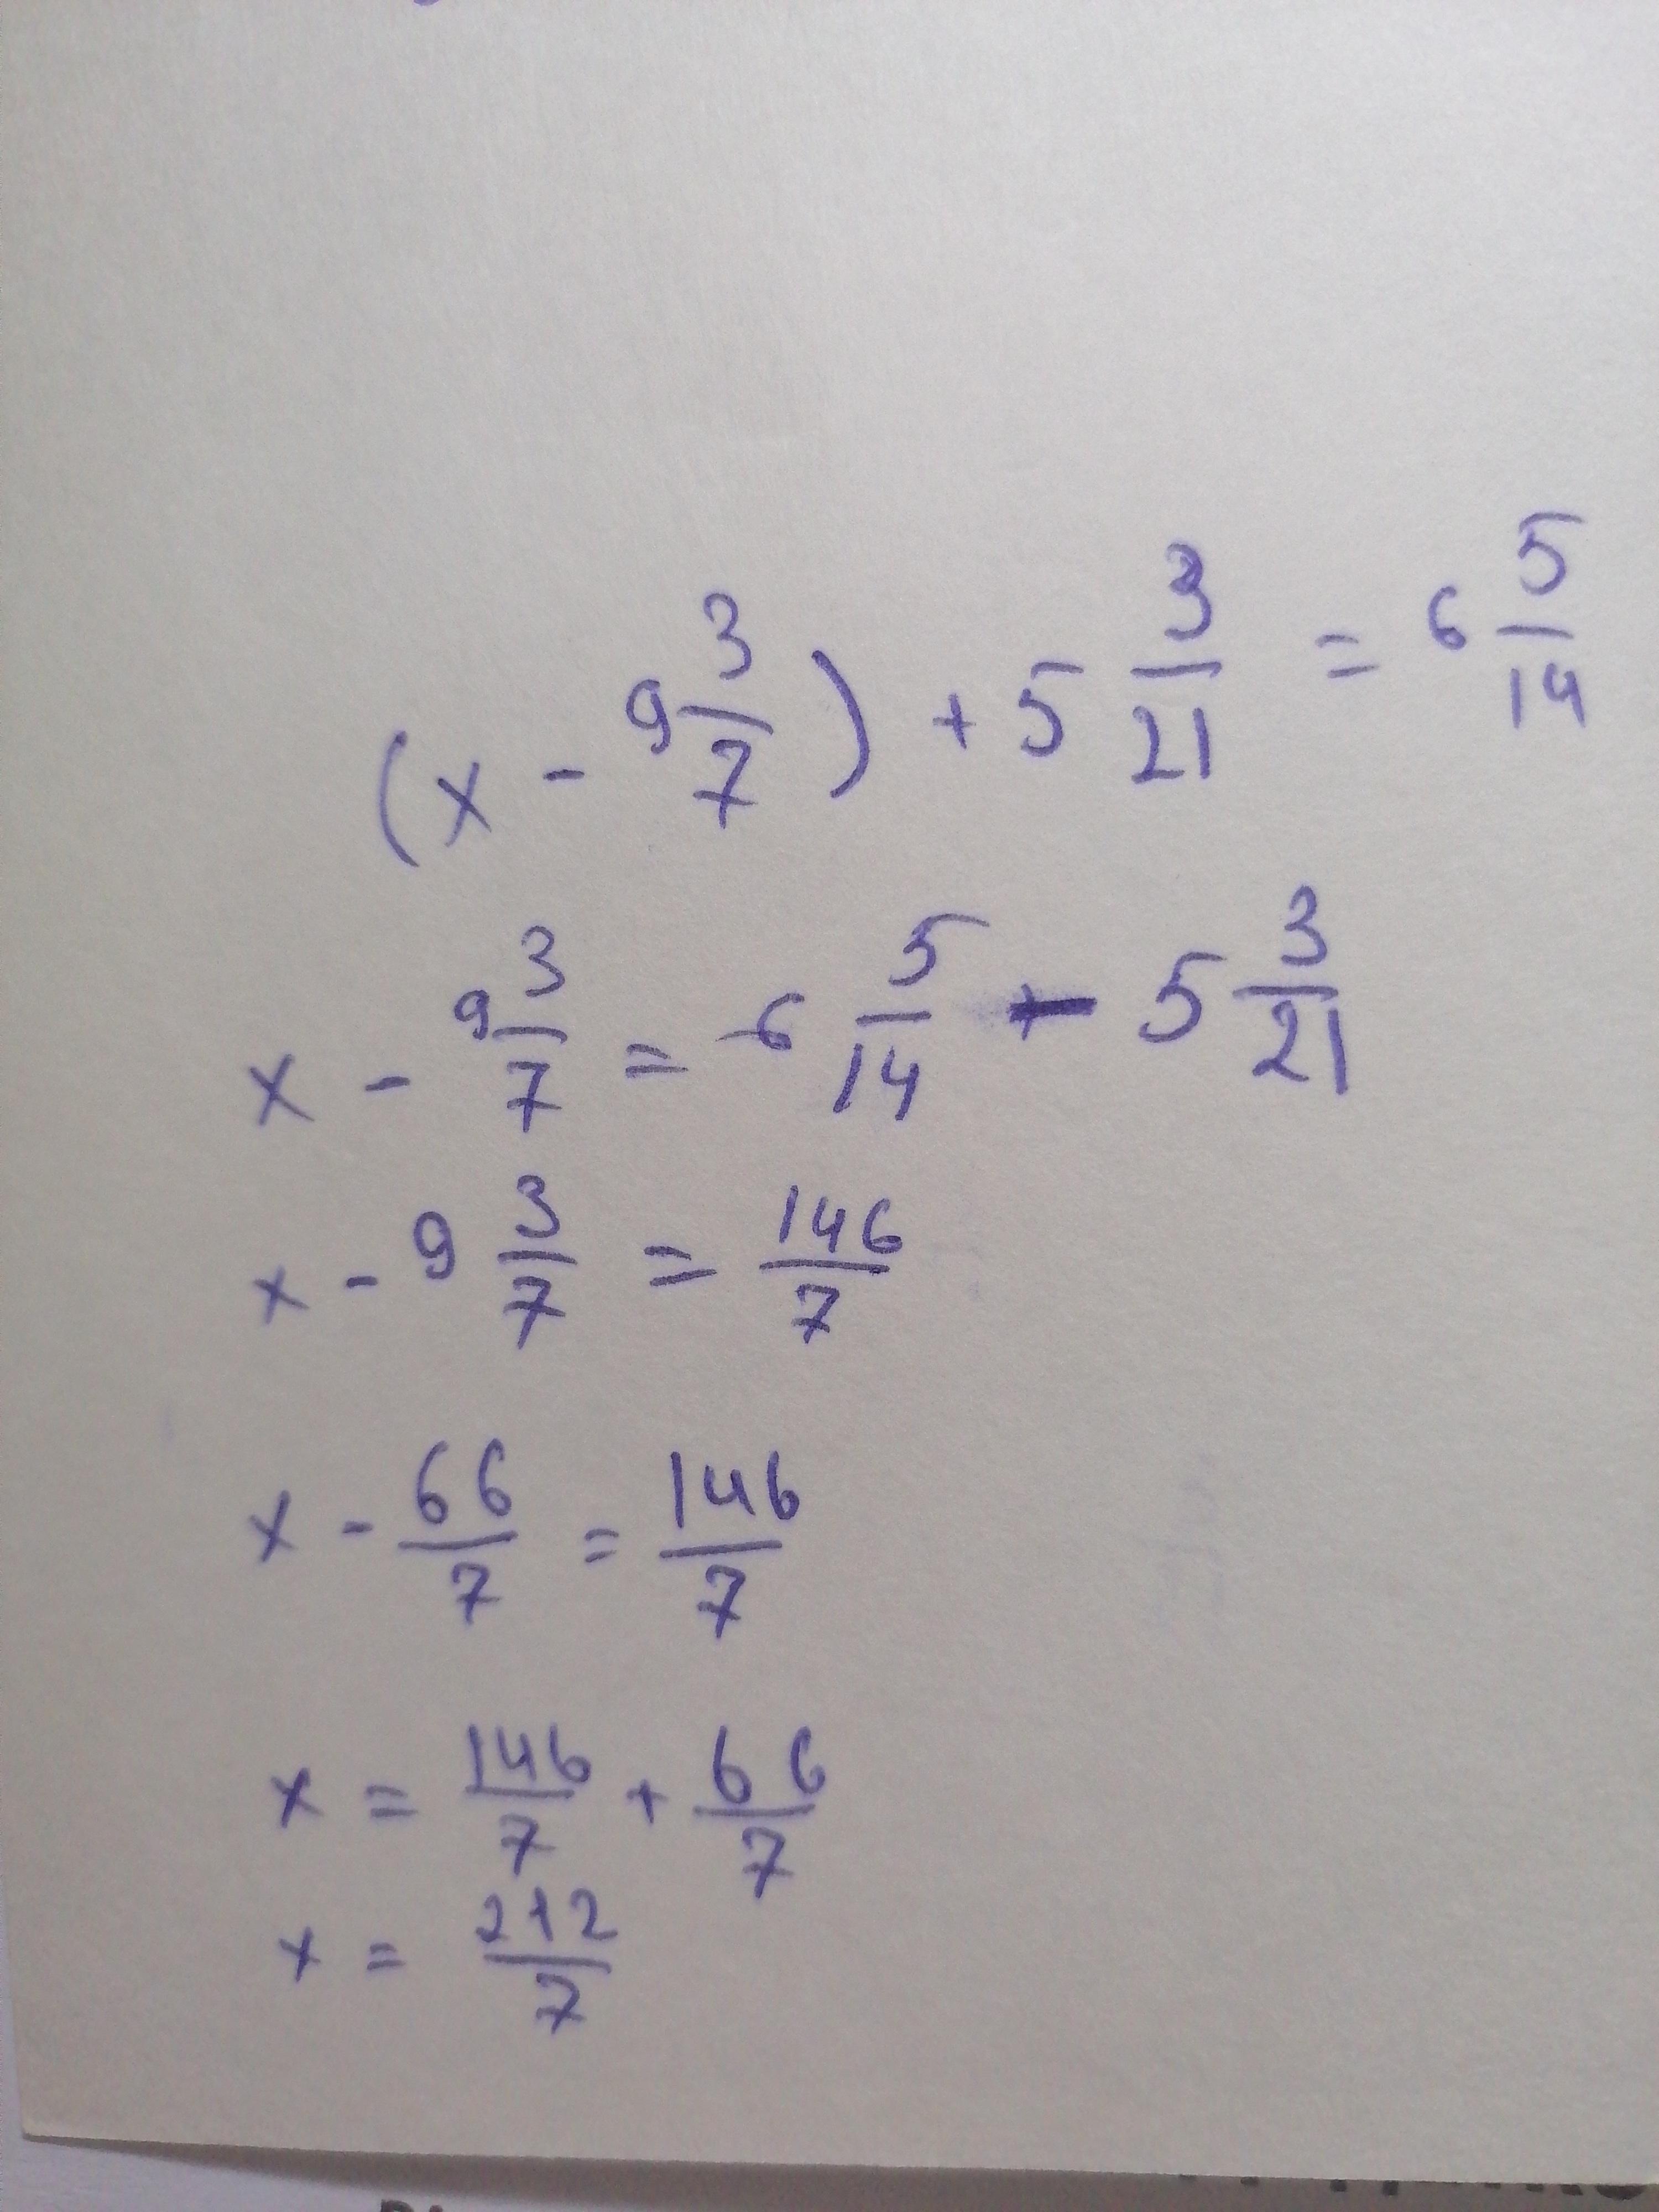 (x - 9 3/7) + 5 3/21 = 6 5/14
x - 9 3/7 = 6 5/14 - 5 3/21
x - 9 3/7 = 146/7
x - 66/7 = 146/7
x = 146/7 + 66/7
x = 212/7